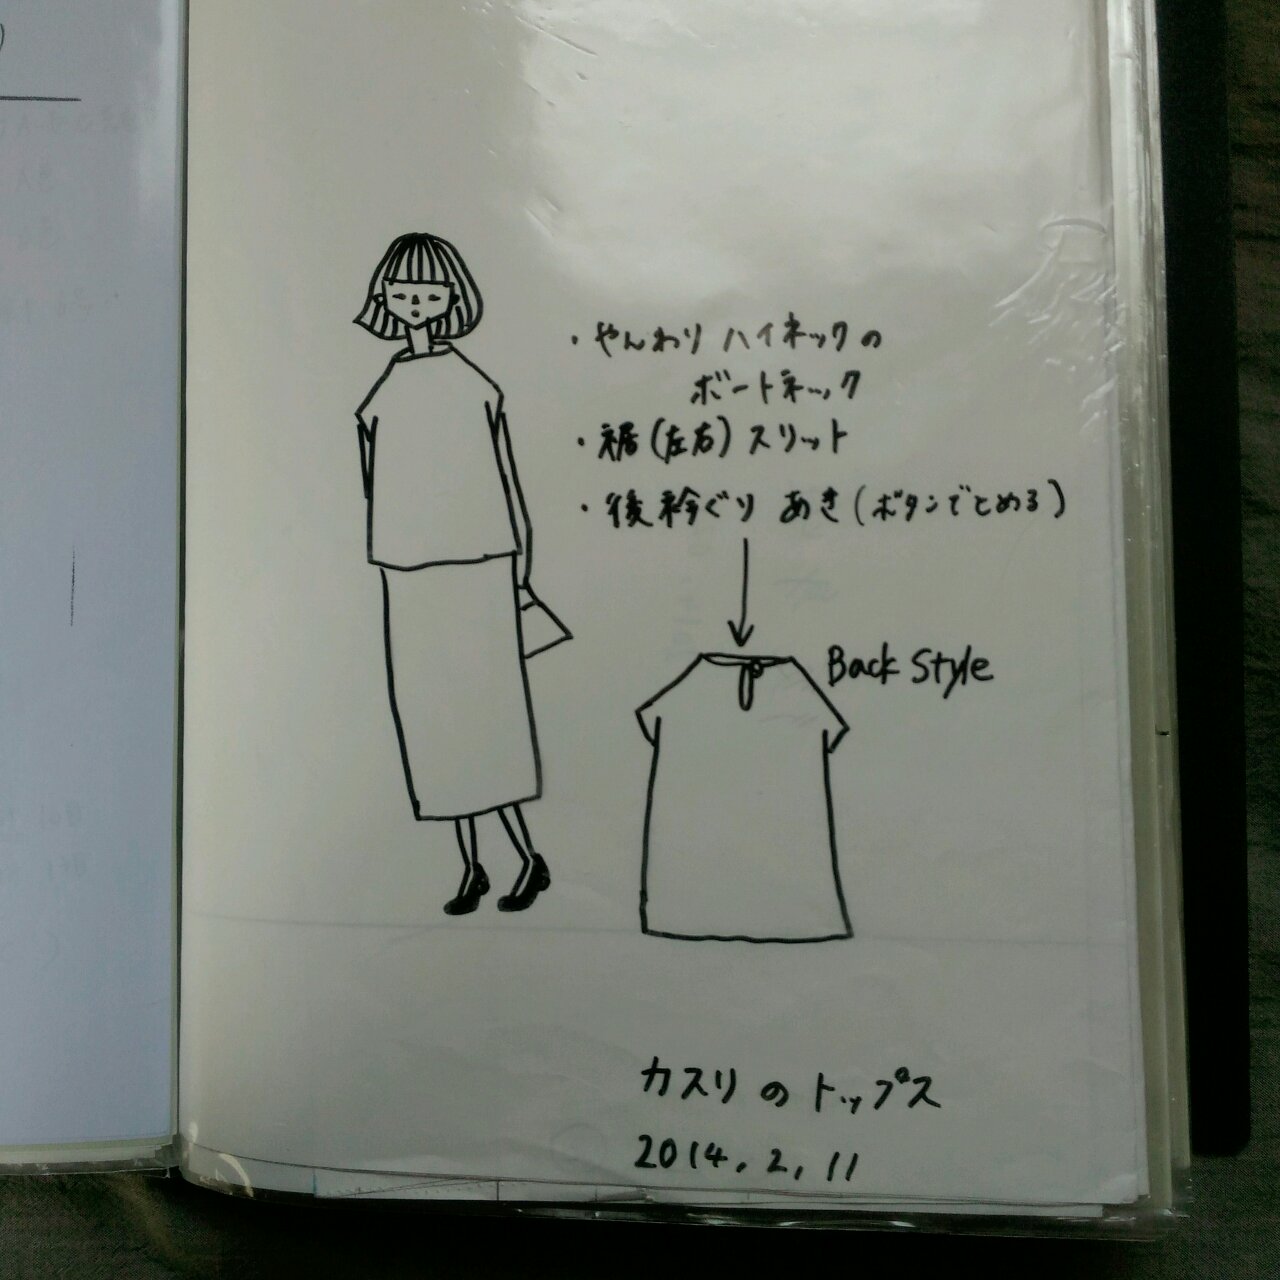 ・やんわりハイネックの
ボートネック
・裾(左右)スリット
・後衿ぐり あき(ボタンでとめる)
Back Style
カスリのトップス
2014.2.11